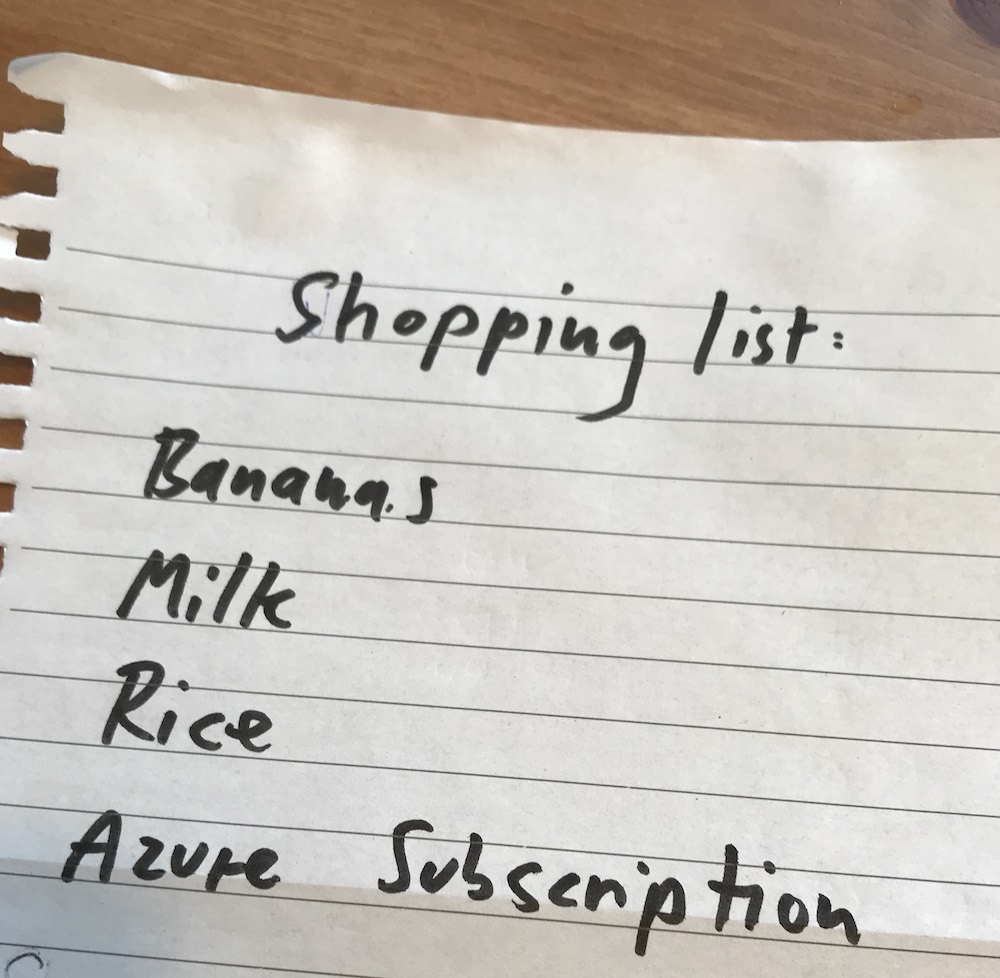 Shopping list:
Bananas
Milk
Rice
Azure Subscription